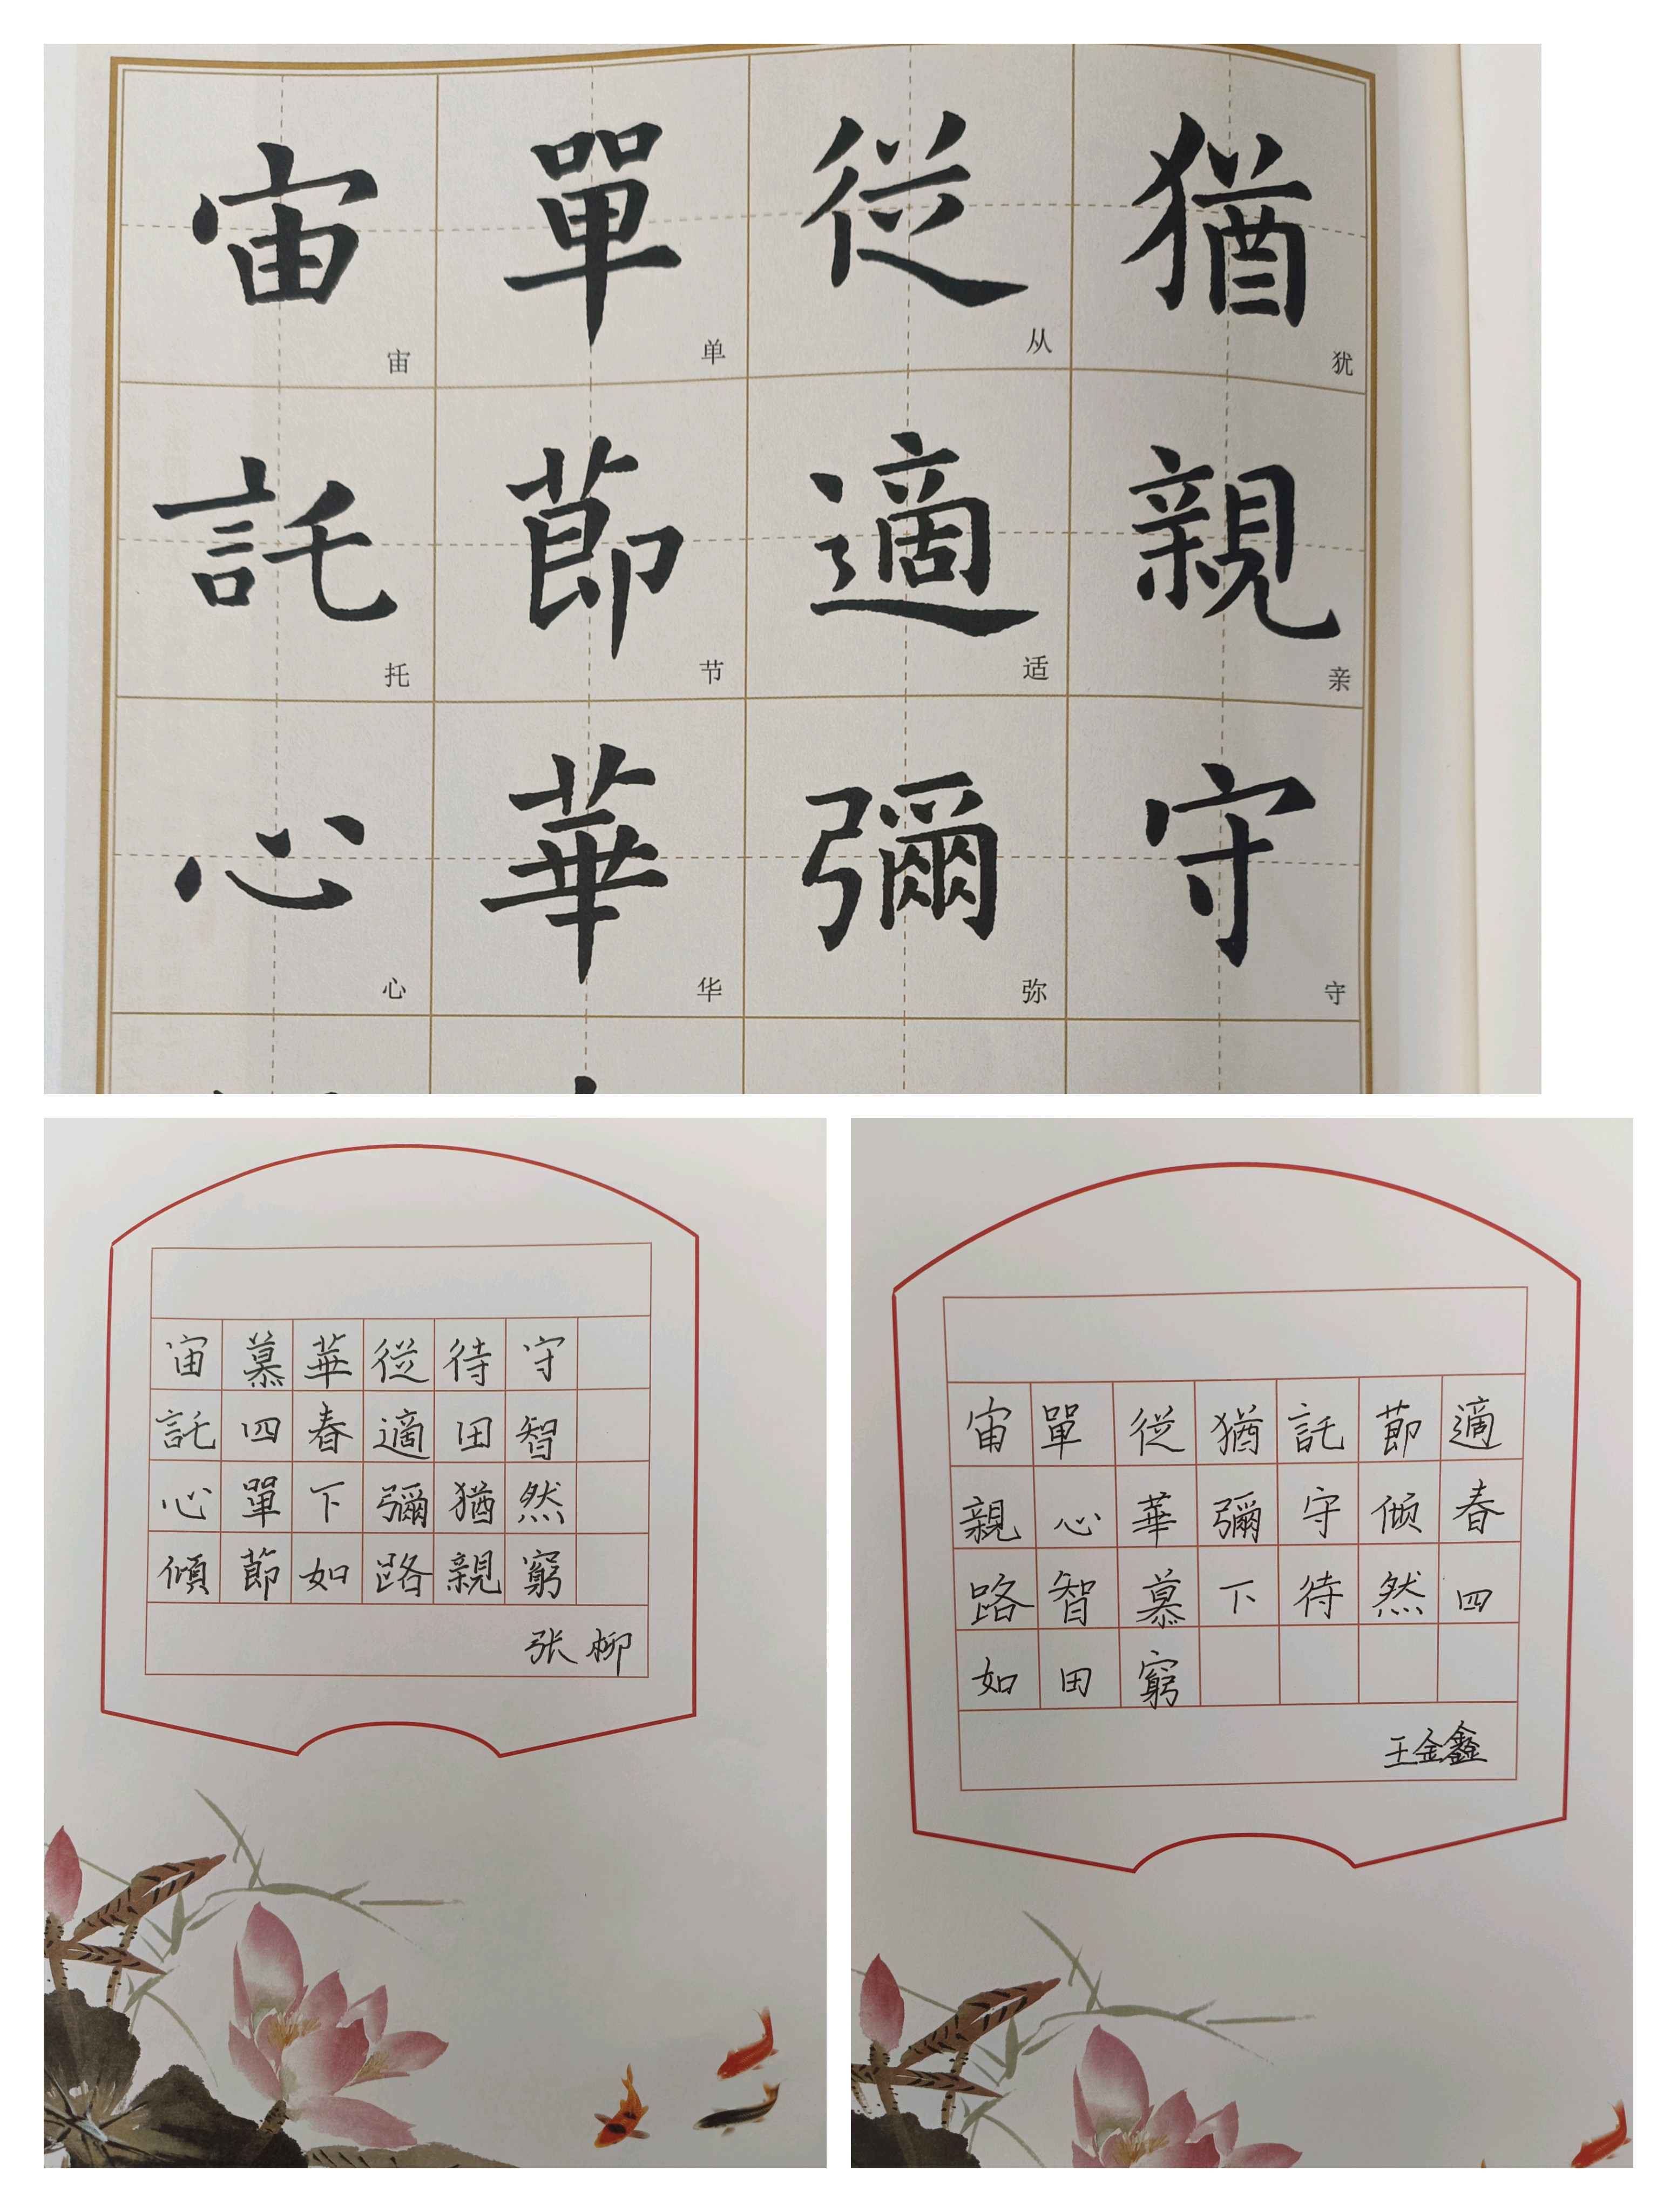 宙 單 從 猶
宙 单 从 犹
託 節 適 親
托 节 适 亲
心 華 彌 守
心 华 弥 守
宙 慕 華 從 待 守
託 四 春 適 田 智
心 單 下 彌 猶 然
傾 節 如 路 親 窮
张柳
宙 單 從 猶 託 節 適
親 心 華 彌 守 倾 春
路 智 慕 下 待 然 四
如 田 窮
王金鑫